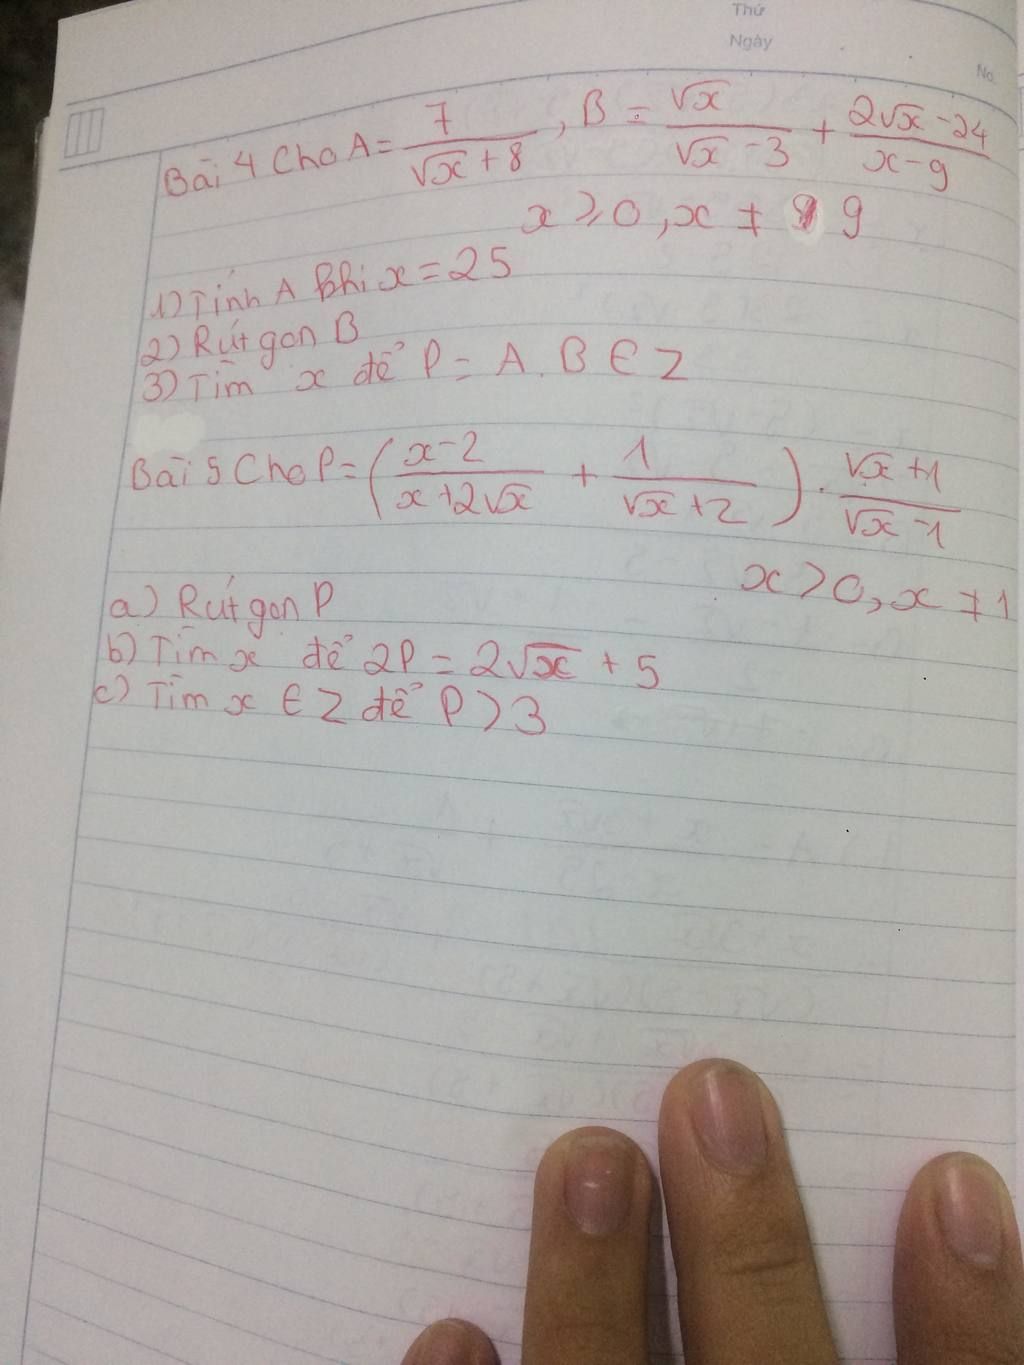 Thứ
Ngày
No.
Bài 4 Cho A = 7/(√x + 8), B = √x/(√x - 3) + (2√x - 24)/(x - 9)
x ≥ 0, x ≠ 9
1) Tính A khi x = 25
2) Rút gọn B
3) Tìm x để P = A . B ∈ Z
Bài 5 Cho P = ((x - 2)/(x + 2√x) + 1/(√x + 2)) . (√x + 1)/(√x - 1)
x > 0, x ≠ 1
a) Rút gọn P
b) Tìm x để 2P = 2√x + 5
c) Tìm x ∈ Z để P > 3